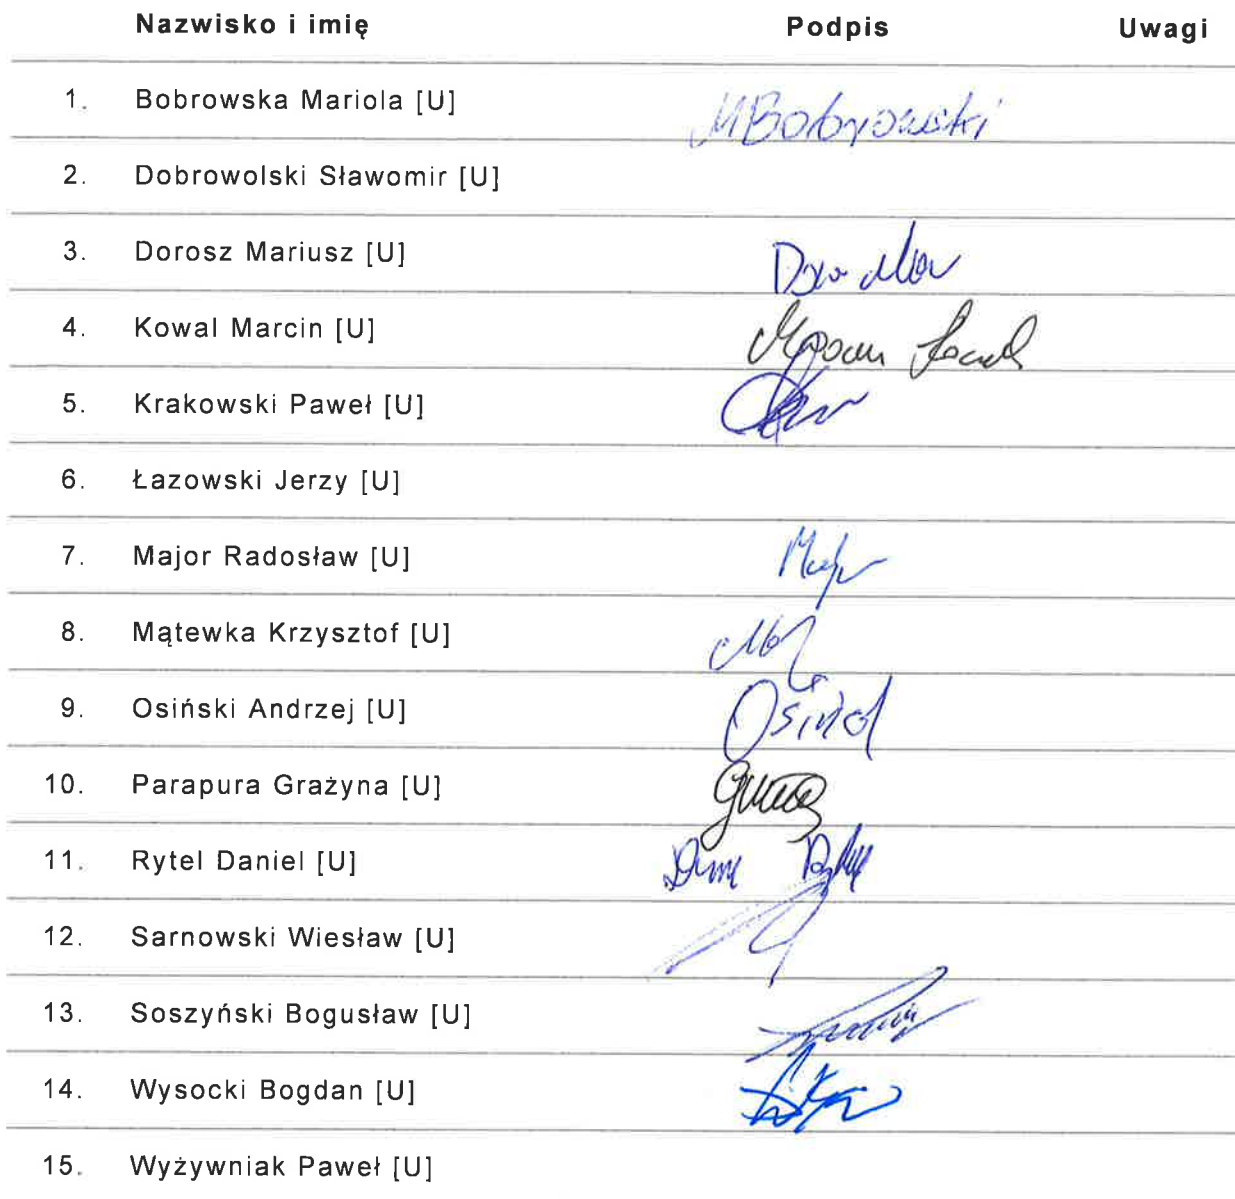 Nazwisko i imię Podpis Uwagi
1. Bobrowska Mariola [U] MBobrowski
2. Dobrowolski Sławomir [U]
3. Dorosz Mariusz [U]
4. Kowal Marcin [U]
5. Krakowski Paweł [U]
6. Łazowski Jerzy [U]
7. Major Radosław [U]
8. Mątewka Krzysztof [U]
9. Osiński Andrzej [U]
10. Parapura Grażyna [U]
11. Rytel Daniel [U]
12. Sarnowski Wiesław [U]
13. Soszyński Bogusław [U]
14. Wysocki Bogdan [U]
15. Wyżywniak Paweł [U]